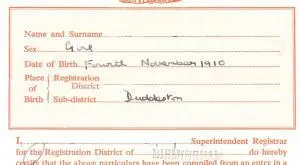 Name and Surname
Sex Girl
Date of Birth Fourth November 1910
Place of Birth { Registration District
Sub-district Duddeston
I, Superintendent Registrar
for the Registration District of do hereby
certify that the above particulars have been compiled from an entry in a